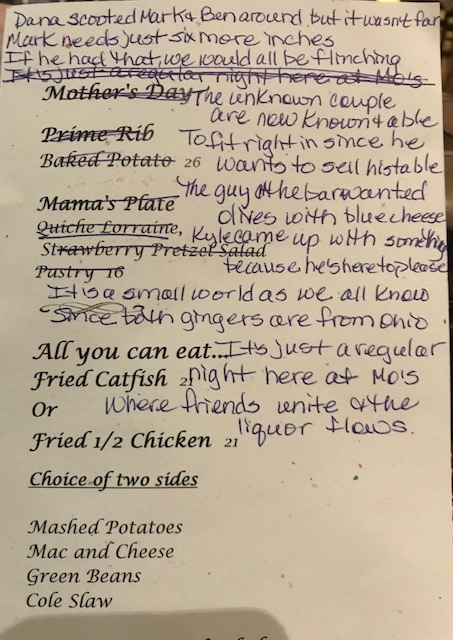 Dana scooted Mark & Ben around, but it wasn't far
Mark needs just six more inches
If he had that, we would all be flinching
It's just a regular night here at Mo's
Mother's Day The unknown couple
are now known & able
Prime Rib To fit right in since he
Baked Potato 26 wants to sell his table
The guy @ the bar wanted
Mama's Plate olives with blue cheese
Quiche Lorraine, Kyle came up with something
Strawberry Pretzel Salad
Pastry 16 because he's here to please
It is a small world as we all know
Since both gingers are from Ohio
All you can eat... It's just a regular
Fried Catfish 21 night here at Mo's
Or where friends unite & the
liquor flows.
Fried 1/2 Chicken 21
Choice of two sides
Mashed Potatoes
Mac and Cheese
Green Beans
Cole Slaw